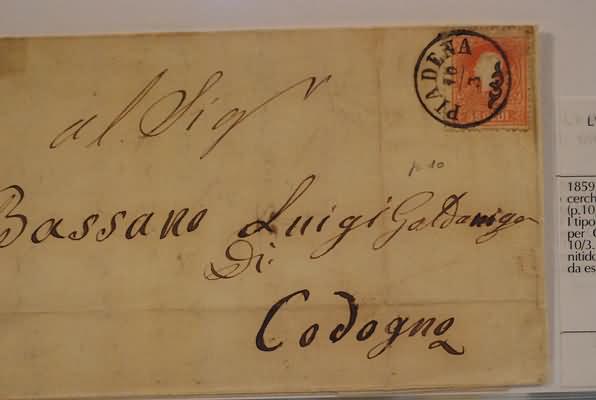 PIADENA
10
3
SOLDI
al Sigr
p. 10
Bassano Luigi Galdaniga
Di
Codogno
1859
cerch
(p.10
I tipo
per C
10/3.
nitido
da es